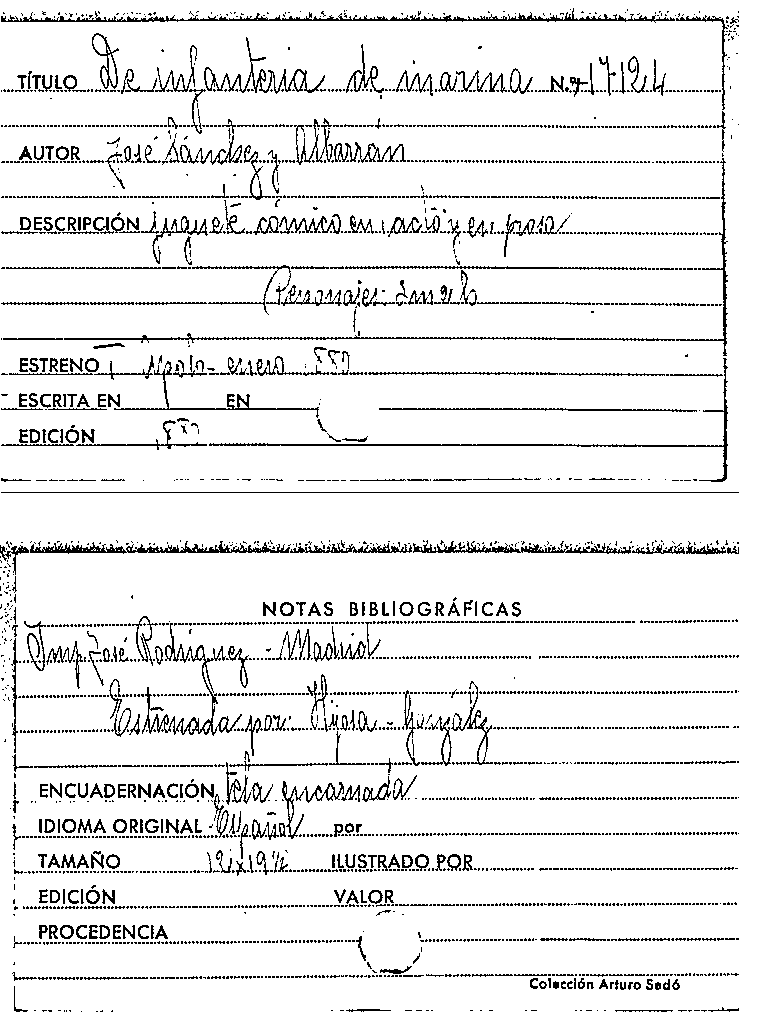 TÍTULO De infanteria de marina N.º 17124
AUTOR José Sánchez y Albarrán
DESCRIPCIÓN juguete cómico en 1 acto y en prosa
Personajes:
ESTRENO T Apolo - enero 1880
ESCRITA EN EN
EDICIÓN 1880
NOTAS BIBLIOGRÁFICAS
Imp. José Rodriguez - Madrid
Estrenada por: Hijosa - González
ENCUADERNACIÓN tela encarnada
IDIOMA ORIGINAL Español por
TAMAÑO ILUSTRADO POR
EDICIÓN VALOR
PROCEDENCIA
Colección Arturo Sedó